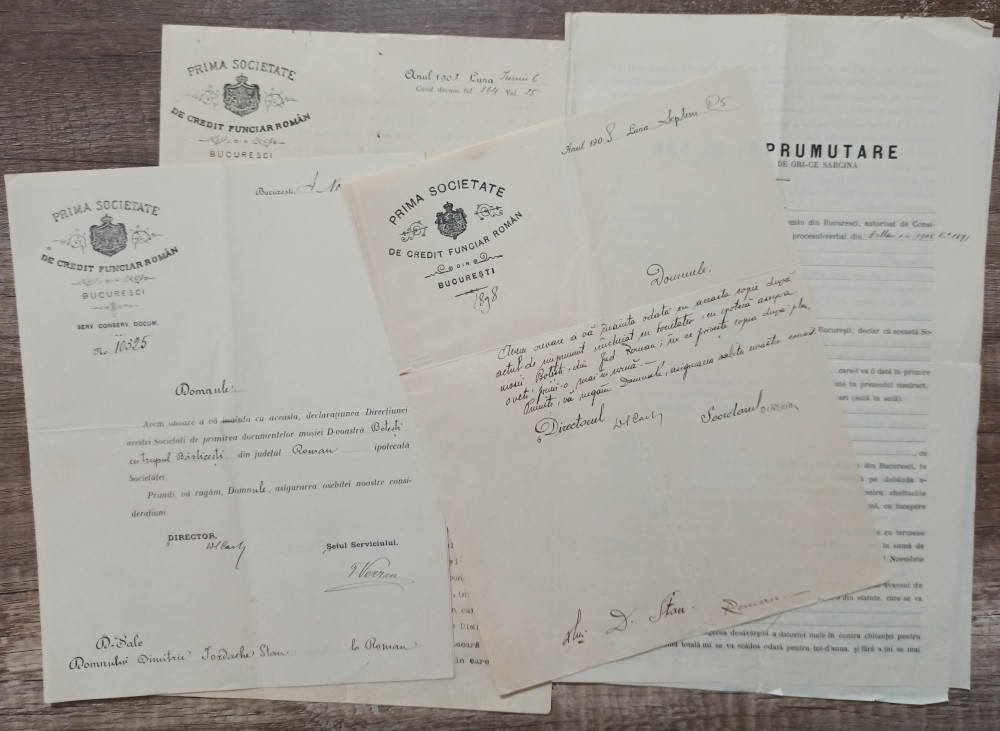 PRIMA SOCIETATE
DE CREDIT FUNCIAR ROMÂN
DIN
BUCURESCI
Anul 1908 Luna Iunie 6
Cons. docum. fol. 364 Vol. 25
PRUMUTARE
DE ORI-CE SARCINA
din Bucuresci, autorisat de Const-
procesul-verbal din
Bucureşti, declar că această So-
care-i va fi dată în primire
în presentul contract.
(nota în notă).
, cu
din Bucuresci, în
pe dobânda
pentru cheltuelile
cu începere
cu termene
în sumă de
Noembrie
avansul de
din statute, care se va
desăvârşită a datoriei mele în contra chitanţei pentru
totală mi se va scădea odată pentru tot-d'auna, şi fără a mi se mai
Bucureşti, 4 No
PRIMA SOCIETATE
DE CREDIT FUNCIAR ROMÂN
DIN
BUCURESCI
SERV. CONSERV. DOCUM.
No. 10325
Domnule,
Avem onoare a vă inainta cu aceasta, declaraţiunea Direcţiunei
acestei Societăţi de primirea documentelor moşiei D-voastră Boteşti
cu trupul Bârticeşti din judeţul Roman ipotecată
Societăţei.
Primiţi, vă rugăm, Domnule, asigurarea osebitei noastre consi-
deraţiuni
DIRECTOR,
Şeful Serviciului,
D-Sale
Domnului Dimitrie Iordache Stan la Roman
Anul 1908 Luna Septem 25
PRIMA SOCIETATE
DE CREDIT FUNCIAR ROMÂN
DIN
BUCUREŞTI
1898
Domnule,
Avem onoare a vă înainta odată cu aceasta copie după
actul de împrumut încheiat cu Societatea, cu ipotecă asupra
mosii Boteşti, din Jud Roman; în ce priveşte copia după pla,
o veţi primi-o mai în urmă.
Primiţi, vă rugăm Domnule, asigurarea osebitei noastre consid.
Directorul
Secretarul
Lui D. Stan. Roman